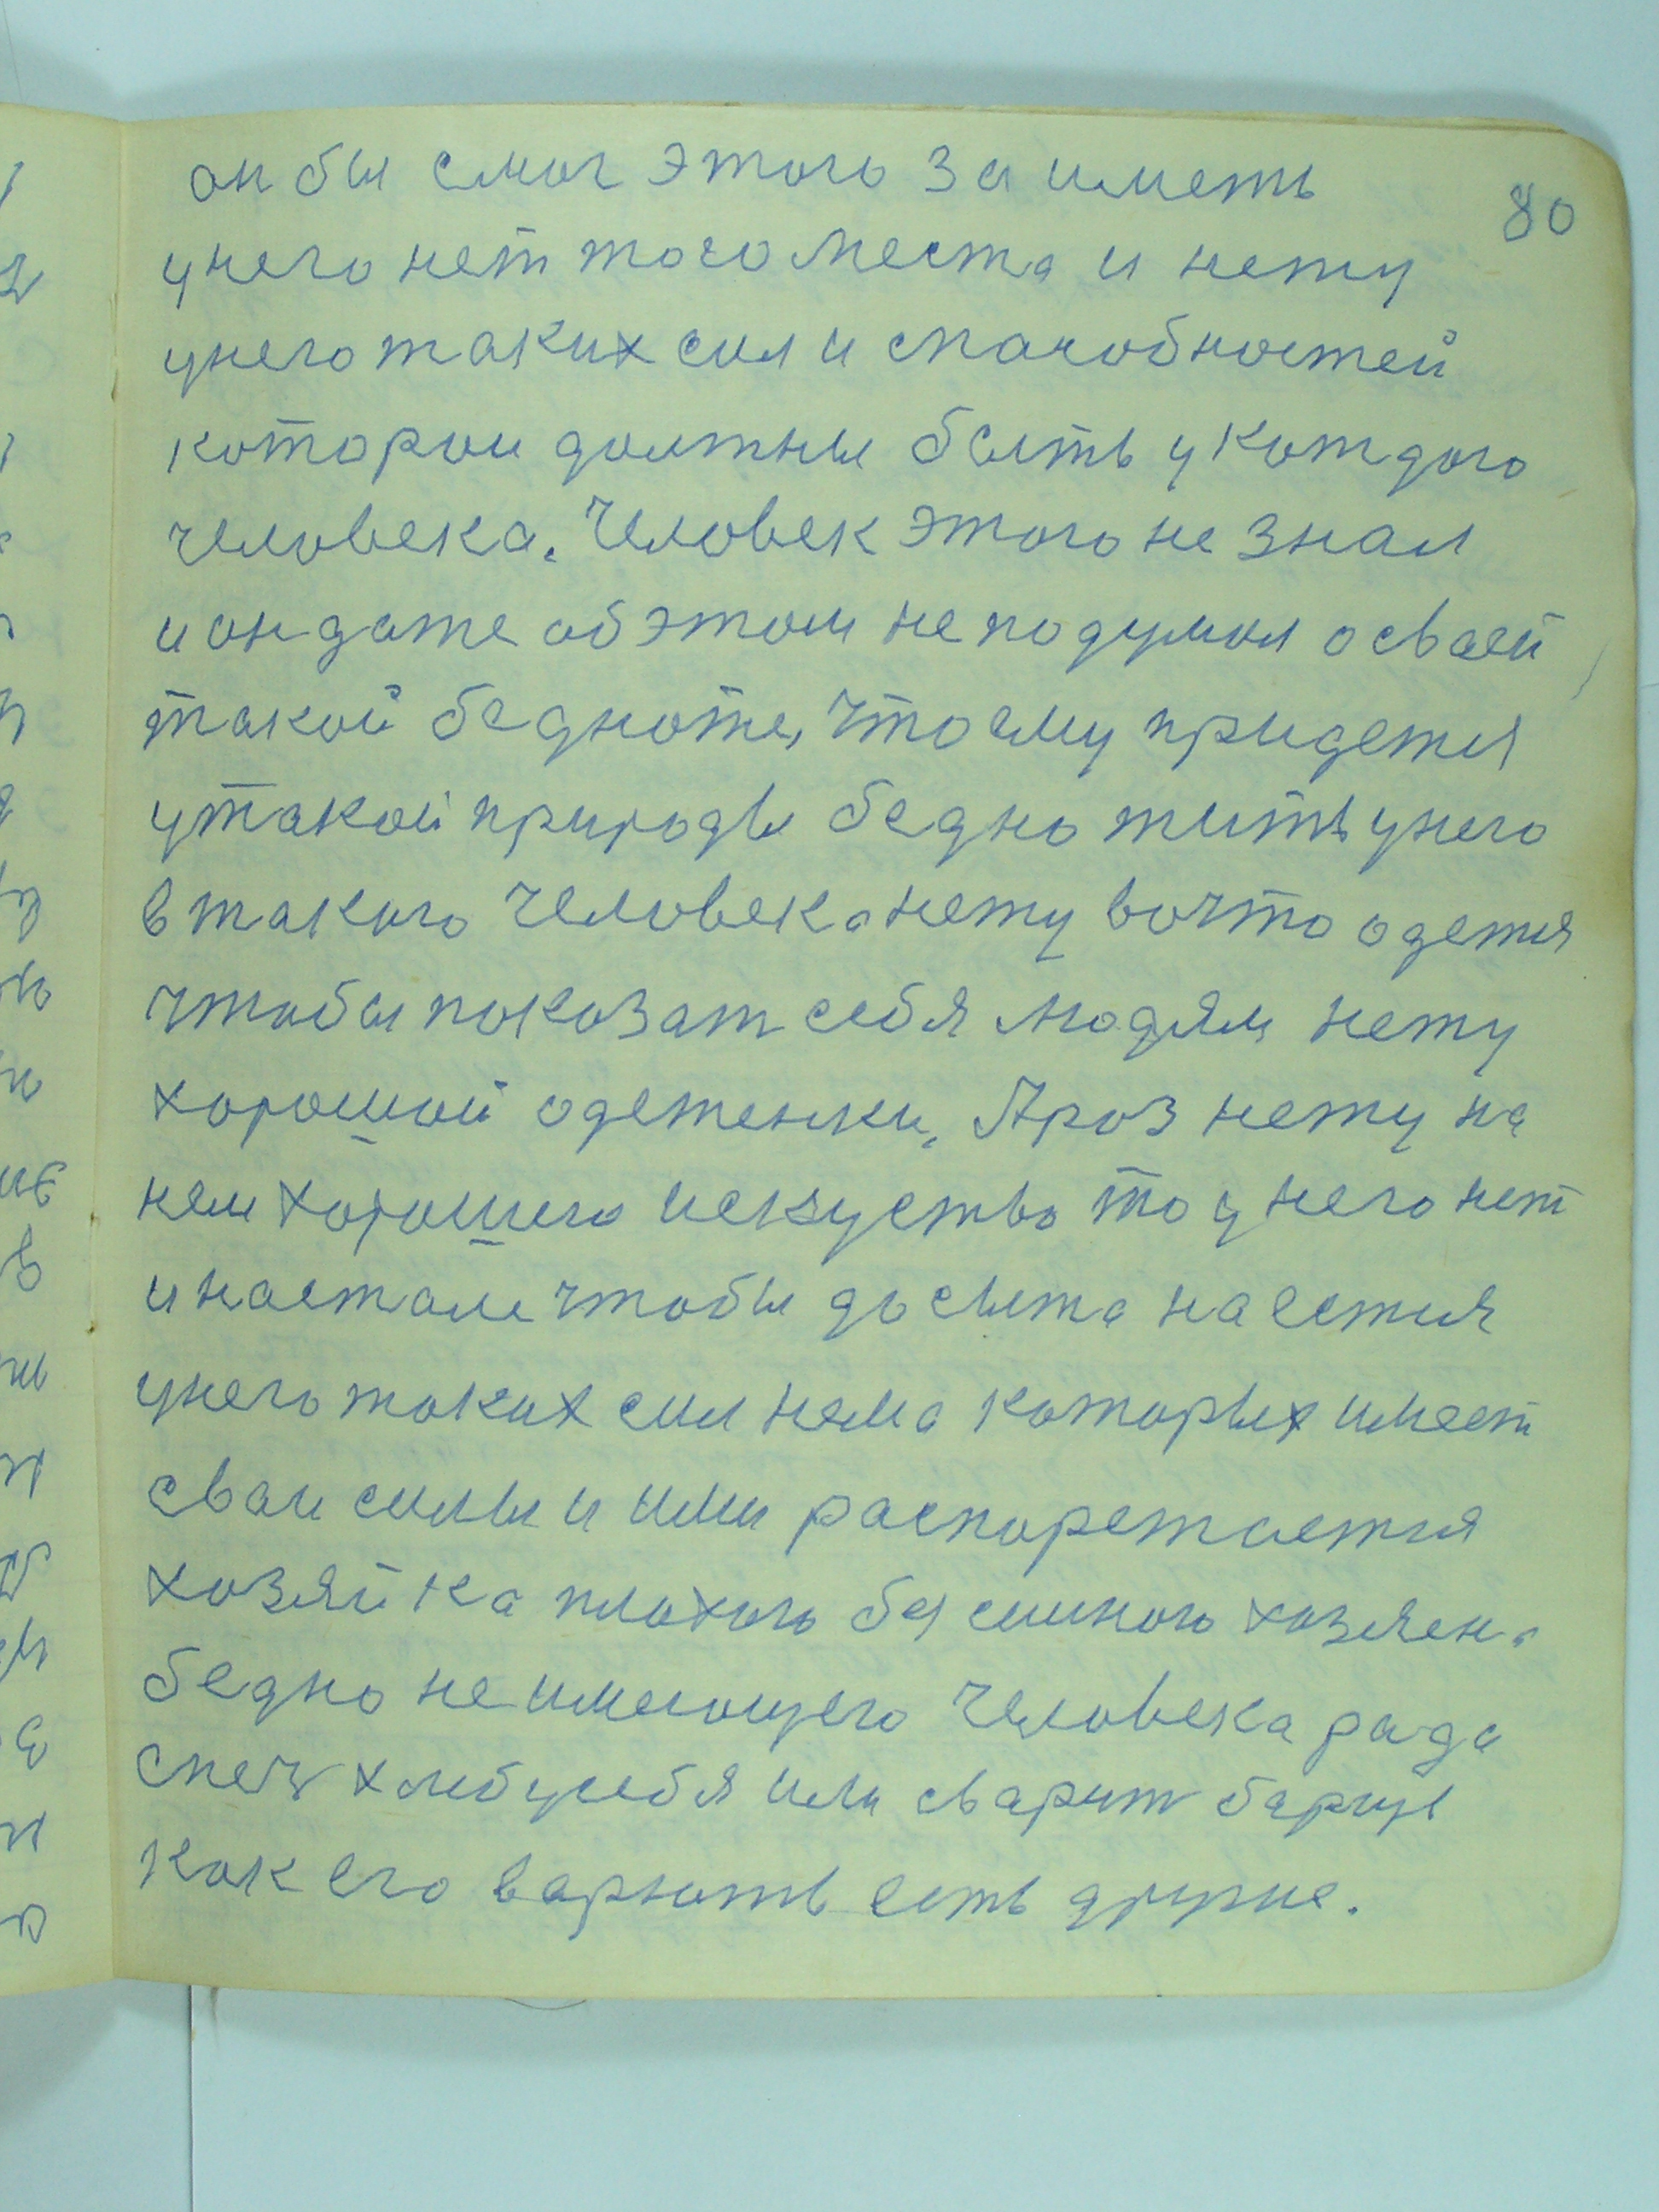 80
он бы смог этого за иметь
унего нет того места и нету
унего таких сил и способностей
которои должны быть укождого
человека. Человек этого не знал
и он даже об этом не подумал о сваей
такой бедноте, что ему придется
утакой природы бедно жить унего
в такого человека нету вочто одется
чтобы показат себя людям нету
хорошой одеженки, А роз нету на
нем хорошего искуства то у него нет
инастоле чтобы до сыта наестия
унего таких сил нема которых имеет
сваи силы и ими распорежается
хозяйка плохого бессилного хозяена
бедно не имеющего человека рада
спеч хлеб усебя или сварит барщь
как его варють есть другие.